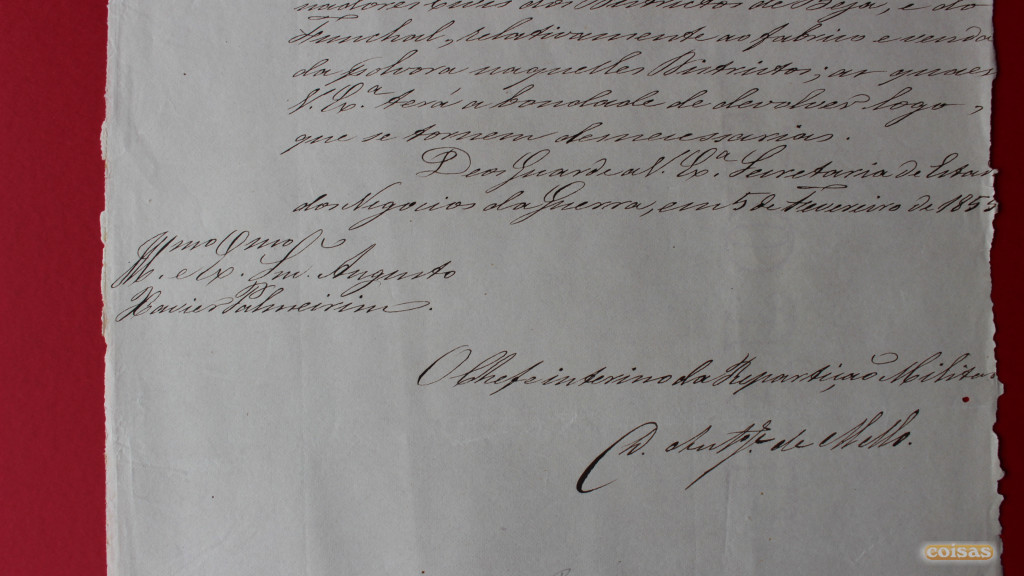 nadores Civis dos Districtos de Beja, e do
Funchal, relativamente ao fabrico e venda
da polvora naquelles Districtos; as quaes
V. Ex.ª terá a bondade de devolver logo,
que se tornem desnecessarias.
Deos Guarde a V. Ex.ª Secretaria de Estado
dos Negocios da Guerra, em 5 de Fevereiro de 1855
Illmo Exmo
Snr. Augusto
Xavier Palmeirim.
O Chefe interino da Repartição Militar
de Mello.
coisas